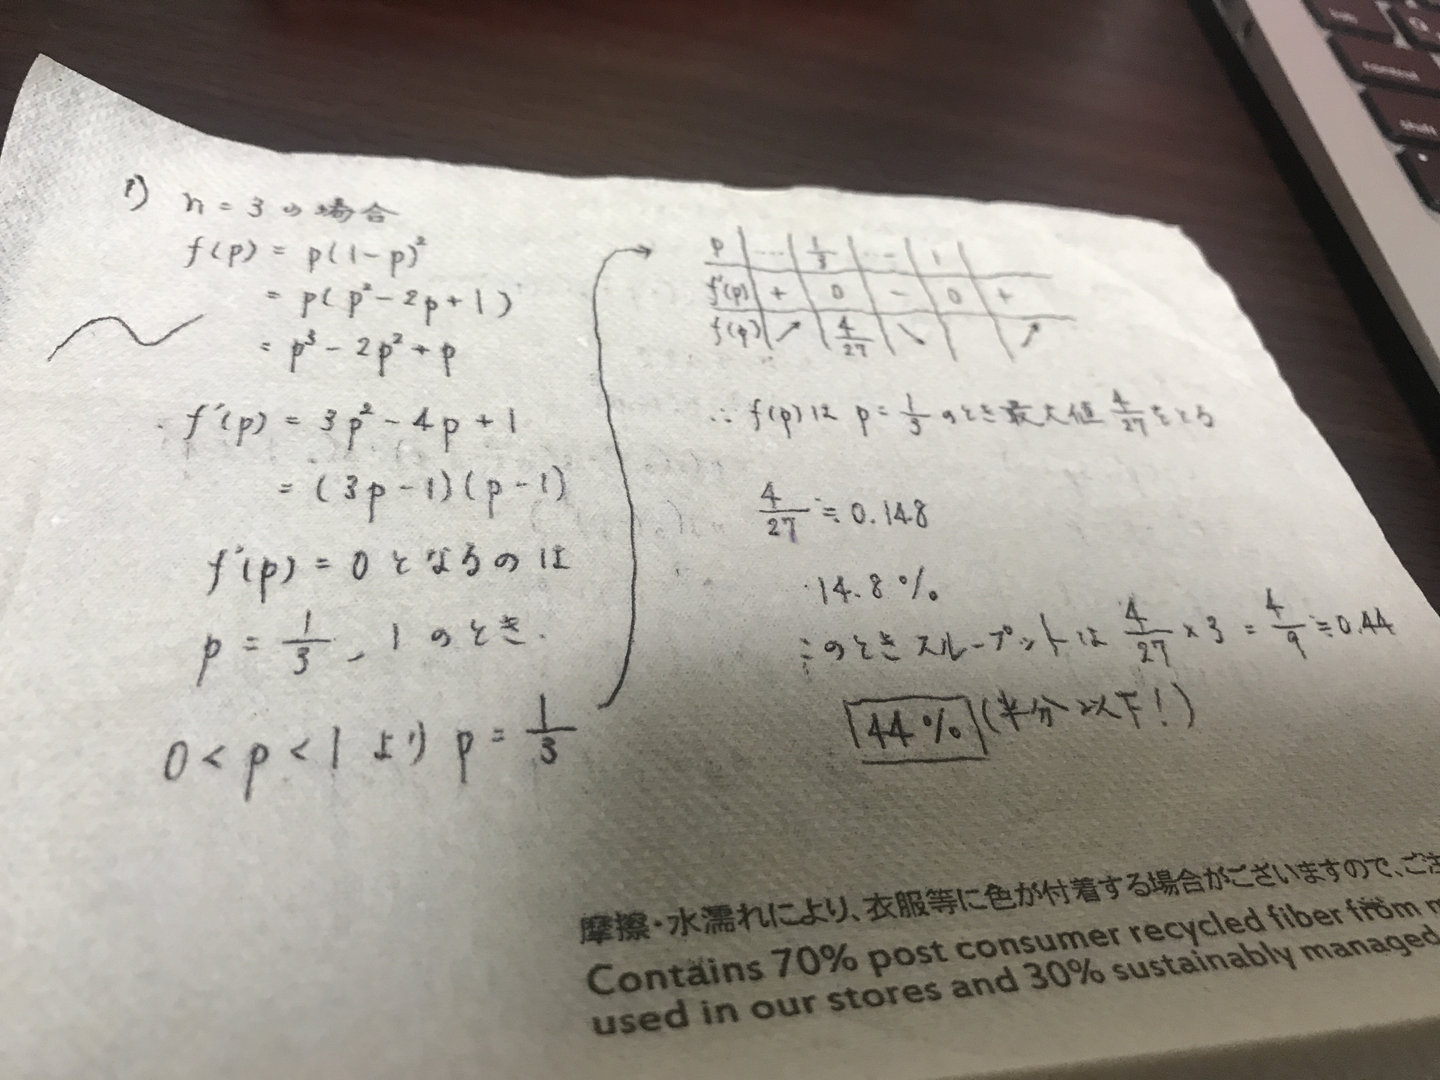 1) n = 3 の場合
f(p) = p(1-p)²
= p(p²-2p+1)
= p³-2p²+p
f'(p) = 3p²-4p+1
= (3p-1)(p-1)
f'(p) = 0 となるのは
p = 1/3, 1 のとき.
0 < p < 1 より p = 1/3
p … 1/3 … 1
f'(p) + 0 - 0 +
f(p) ↗ 4/27 ↘ ↗
∴ f(p)は p = 1/3 のとき最大値 4/27 をとる
4/27 ≒ 0.148
14.8%
このときスループットは 4/27 × 3 = 4/9 ≒ 0.44
44% (半分以下!)
摩擦・水濡れにより、衣服等に色が付着する場合がございますので、ご注
Contains 70% post consumer recycled fiber from
used in our stores and 30% sustainably managed
control
shift